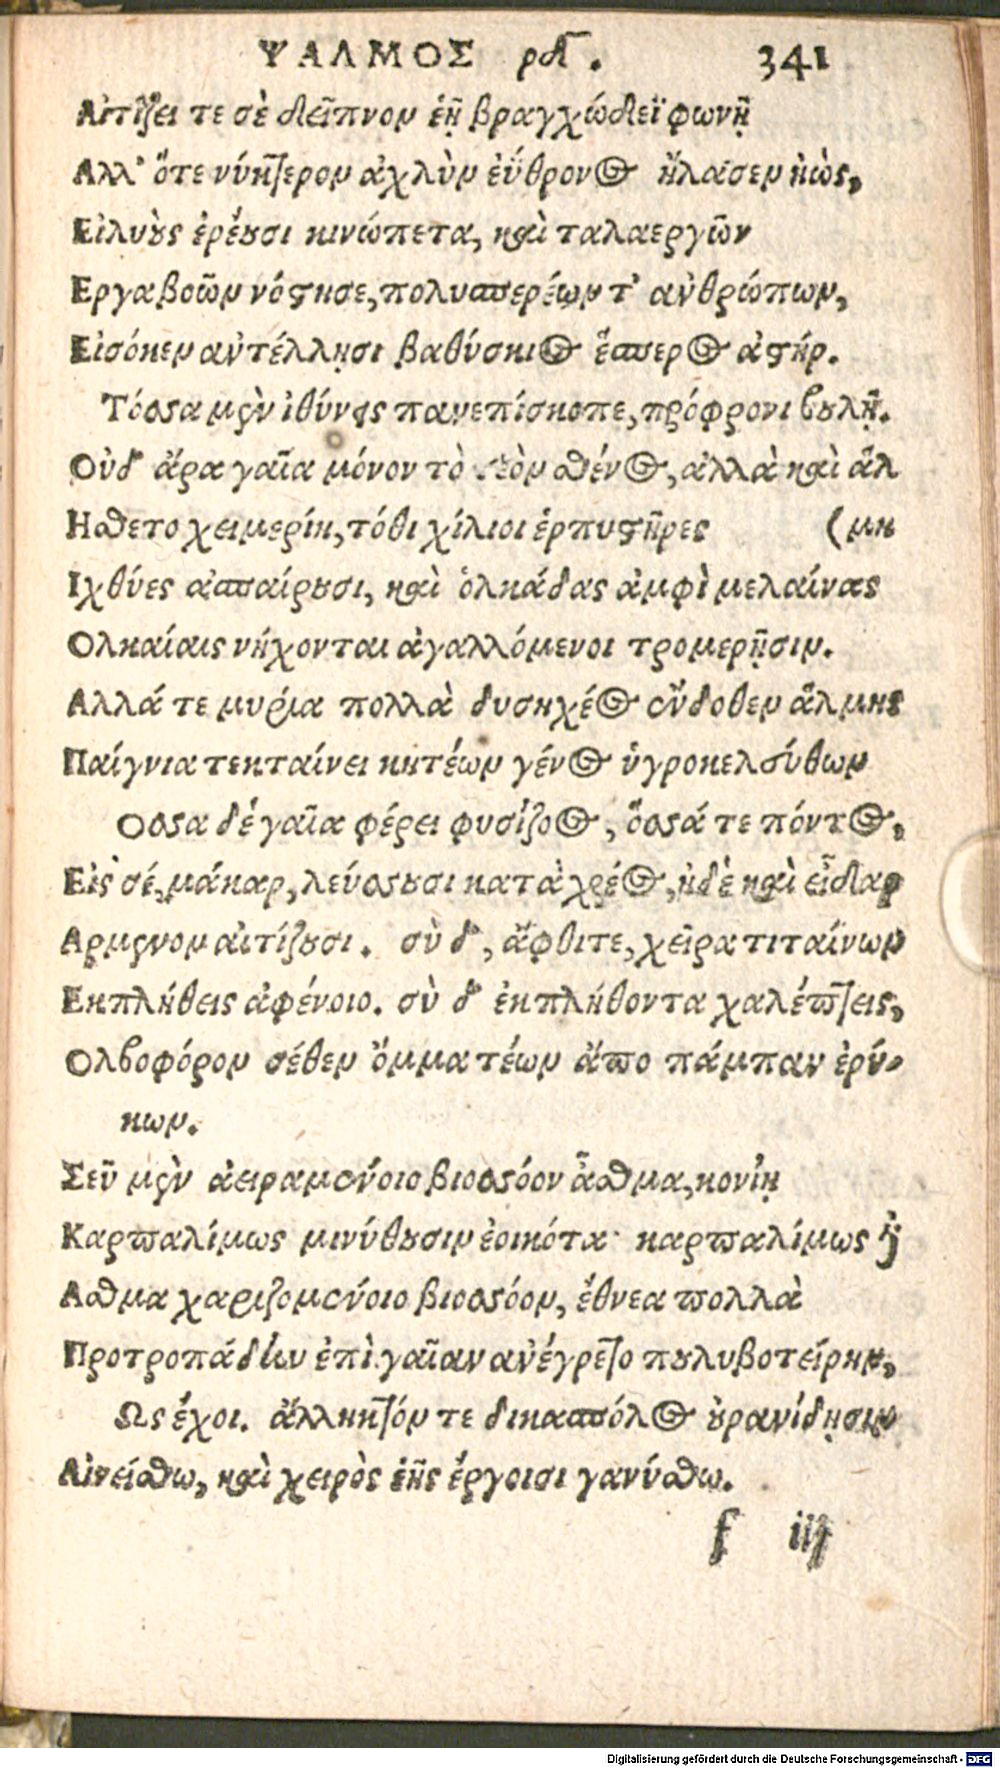 ΨΑΛΜΟΣ ρδ. 341
Αἰτίζει τε σὲ δεῖπνον ἑῇ βραγχώδεϊ φωνῇ
Αλλ' ὅτε νύκτερον ἀχλὺν ἐΰθρονος ἤλασεν ἠὼς,
Εἰλυοὺς ἐρέουσι κινώπετα, καὶ ταλαεργῶν
Εργα βοῶν νόστησε, πολυσπερέων τ' ἀνθρώπων,
Εἰσόκεν ἀντέλλῃσι βαθύσκιος ἕσπερος ἀστήρ.
Τόσσα μὲν ἰθύνεις πανεπίσκοπε, πρόφρονι βουλῇ.
Οὐδ' ἄρα γαῖα μόνον τὸ σθένος, ἀλλὰ καὶ ἅλ
Ησθετο χειμερίη, τόθι χίλιοι ἑρπυστῆρες (μη
Ιχθύες ἀσπαίρουσι, καὶ ὁλκάδας ἀμφὶ μελαίνας
Ολκαίαις νήχονται ἀγαλλόμενοι τρομερῇσιν.
Αλλά τε μυρία πολλὰ δυσηχέος ἔνδοθεν ἅλμης
Παίγνια τεκταίνει κητέων γένος ὑγροκελεύθων
Οσσα δέ γαῖα φέρει φυσίζοος, ὅσσά τε πόντος,
Εἰς σέ, μάκαρ, λεύσσουσι κατὰ χρέος, ἠδὲ καὶ εἶδαρ
Αρμενον αἰτίζουσι. σὺ δ', ἄφθιτε, χεῖρα τιταίνων
Εκπλήθεις ἀφένοιο. σὺ δ' ἐκπλήθοντα χαλέπτεις,
Ολβοφόρον σέθεν ὄμμα τέων ἄπο πάμπαν ἐρύ-
κων.
Σεῦ μὲν ἀειραμένοιο βιοσσόον ἆσθμα, κονίῃ
Καρπαλίμως μινύθουσιν ἐοικότα· καρπαλίμως δὲ
Ασθμα χαριζομένοιο βιοσσόον, ἔθνεα πολλὰ
Προτροπάδην ἐπὶ γαῖαν ἀνέγρετο πουλυβοτείρην,
Ως ἔχοι. ἄλληκτόν τε δικασπόλος οὐρανίδῃσιν
Αἰνείσθω, καὶ χειρὸς ἑῆς ἔργοισι γανύσθω.
f iij
Digitalisierung gefördert durch die Deutsche Forschungsgemeinschaft - DFG